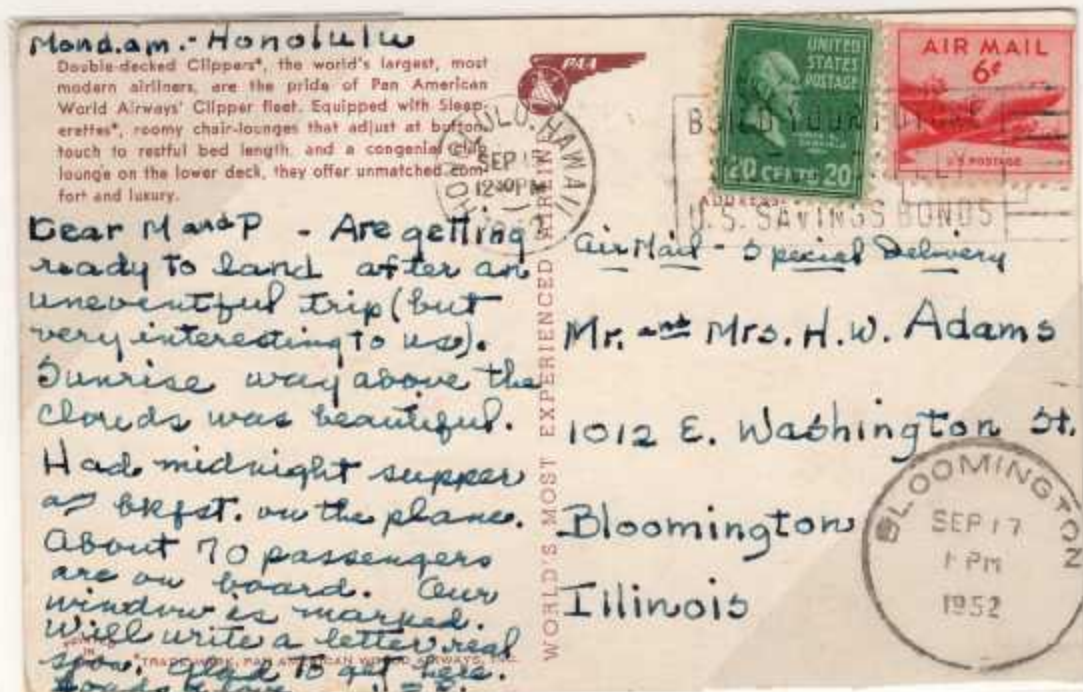 Mond. am. - Honolulu
Double-decked Clippers*, the world's largest, most
modern airliners, are the pride of Pan American
World Airways' Clipper fleet. Equipped with Sleep-
erettes*, roomy chair-lounges that adjust at button
touch to restful bed length, and a congenial club
lounge on the lower deck, they offer unmatched com-
fort and luxury.
PAA
HONOLULU-HAWAII
SEP 15
12 30 PM
UNITED
STATES
POSTAGE
20 CENTS 20
AIR MAIL
6¢
U.S. POSTAGE
BUILD YOUR FUTURE
U.S. SAVINGS BONDS
ADDRESS
Dear M and P - Are getting
ready to land after an
uneventful trip (but
very interesting to us).
Sunrise way above the
clouds was beautiful.
Had midnight supper
and bkfst. on the plane.
About 70 passengers
are on board. Our
window is marked.
Will write a letter real
soon. Glad to get here.
Loads of love
PRINTED
IN
*TRADE MARK, PAN AMERICAN WORLD AIRWAYS, INC.
WORLD'S MOST EXPERIENCED AIRLINE
Air Mail - Special Delivery
Mr. and Mrs. H. W. Adams
1012 E. Washington St.
Bloomington
Illinois
BLOOMINGTON
SEP 17
1 PM
1952